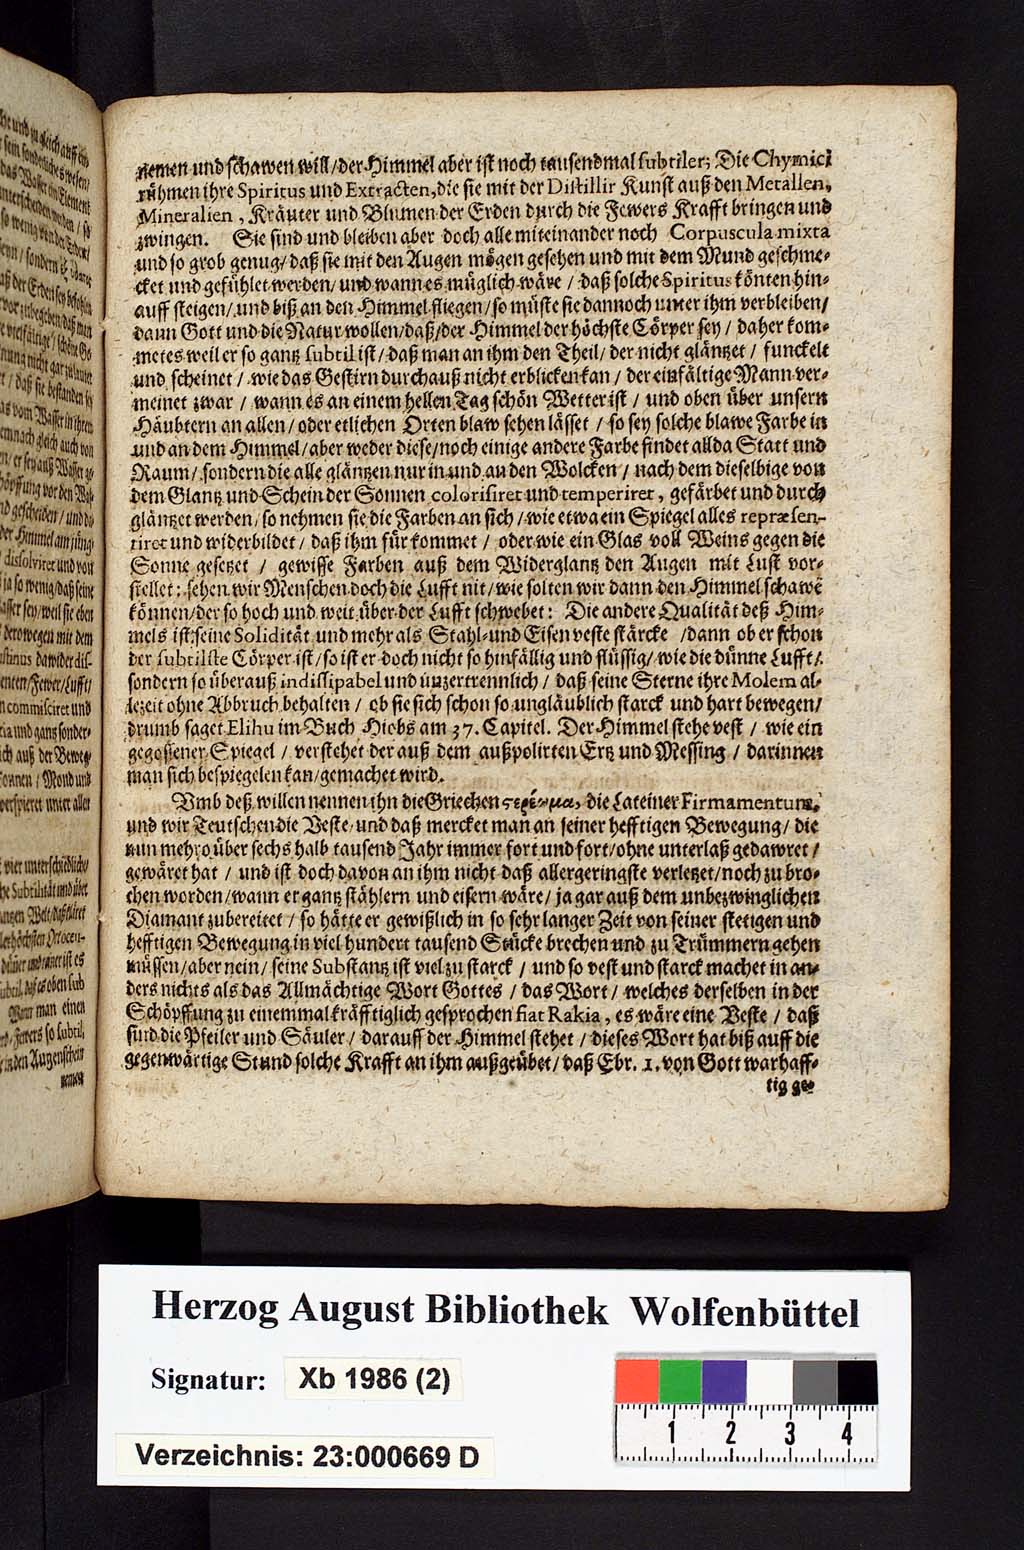 nemen und schawen will / der Himmel aber ist noch tausendmal subtiler; Die Chymici
rühmen ihre Spiritus und Extracten, die sie mit der Distillir Kunst auß den Metallen,
Mineralien, Kräuter und Blumen der Erden durch die Fewers Krafft bringen und
zwingen. Sie sind und bleiben aber doch alle miteinander noch Corpuscula mixta
und so grob genug / daß sie mit den Augen mögen gesehen und mit dem Mund geschme-
cket und gefühlet werden / und wann es müglich wäre / daß solche Spiritus könten hin-
auff steigen / und biß an den Himmel fliegen / so müste sie dannoch unter ihm verbleiben /
dann Gott und die Natur wollen / daß / der Himmel der höchste Cörper sey / daher kom-
met es weil er so gantz subtil ist / daß man an ihm den Theil / der nicht gläntzet / funckelt
und scheinet / wie das Gestirn durchauß nicht erblicken kan / der einfältige Mann ver-
meinet zwar / wann es an einem hellen Tag schön Wetter ist / und oben über unsern
Häubtern an allen / oder etlichen Orten blaw sehen lässet / so sey solche blawe Farbe in
und an dem Himmel / aber weder diese / noch einige andere Farbe findet allda Statt und
Raum / sondern die alle gläntzen nur in und an den Wolcken / nach dem dieselbige von
dem Glantz und Schein der Sonnen colorisiret und temperiret, gefärbet und durch
gläntzet werden / so nehmen sie die Farben an sich / wie etwa ein Spiegel alles repræsen-
tiret und widerbildet / daß ihm für kommet / oder wie ein Glas voll Weins gegen die
Sonne gesetzet / gewisse Farben auß dem Widerglantz den Augen mit Lust vor-
stellet: sehen wir Menschen doch die Lufft nit / wie solten wir dann den Himmel schawē
können / der so hoch und weit über der Lufft schwebet: Die andere Qualität deß Him-
mels ist seine Solidität und mehr als Stahl- und Eisenveste stärcke / dann ob er schon
der subtilste Cörper ist / so ist er doch nicht so hinfällig und flüssig / wie die dünne Lufft /
sondern so überauß indissipabel und unzertrennlich / daß seine Sterne ihre Molem al-
lezeit ohne Abbruch behalten / ob sie sich schon so ungläublich starck und hart bewegen /
drumb saget Elihu im Buch Hiobs am 37. Capitel. Der Himmel stehe vest / wie ein
gegossener Spiegel / verstehet der auß dem außpolirten Ertz und Messing / darinnen
man sich bespiegelen kan / gemachet wird.
Umb deß willen nennen ihn die Griechen ςερέωμα, die Lateiner Firmamentum,
und wir Teutschen die Veste / und daß mercket man an seiner hefftigen Bewegung / die
nun mehro über sechs halb tausend Jahr immer fort und fort / ohne unterlaß gedawret /
gewäret hat / und ist doch davon an ihm nicht daß allergeringste verletzet / noch zu bro-
chen worden / wann er gantz stählern und eisern wäre / ja gar auß dem unbezwinglichen
Diamant zubereitet / so hätte er gewißlich in so sehr langer Zeit von seiner stetigen und
hefftigen Bewegung in viel hundert tausend Stücke brechen und zu Trümmern gehen
müssen / aber nein / seine Substantz ist viel zu starck / und so vest und starck machet in an-
ders nichts als das Allmächtige Wort Gottes / das Wort / welches derselben in der
Schöpffung zu einemmal kräfftiglich gesprochen fiat Rakia, es wäre eine Veste / daß
sind die Pfeiler und Säuler / darauff der Himmel stehet / dieses Wort hat biß auff die
gegenwärtige Stund solche Krafft an ihm außgeübet / daß Ebr. 1. von Gott warhaff-
tig ge-
Herzog August Bibliothek Wolfenbüttel
Signatur: Xb 1986 (2)
Verzeichnis: 23:000669 D
1 2 3 4